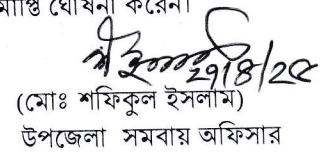 ঘোষনা করেন।
২৭/৪/২৫
(মোঃ শফিকুল ইসলাম)
উপজেলা সমবায় অফিসার